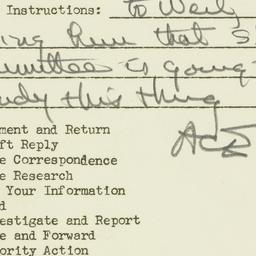 Instructions: to Wally
ing him that S
mmittee is going
udy this thing
ment and Return
ft Reply
e Correspondence
e Research
Your Information
d
vestigate and Report
e and Forward
ority Action